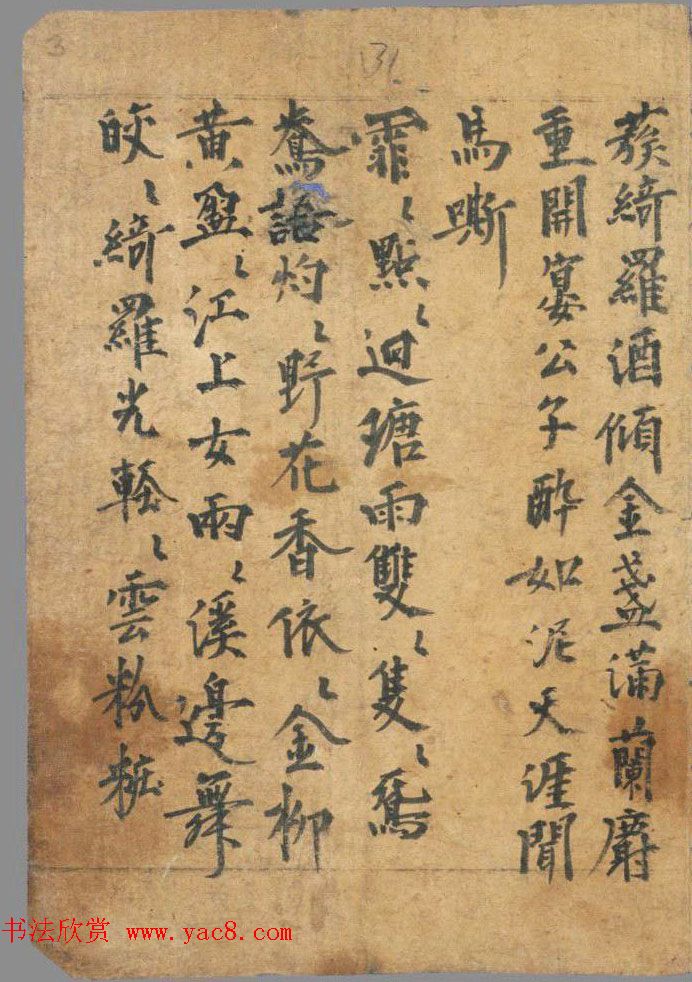 3
31
蔟綺羅酒傾金盞滿蘭麝
重開宴公子醉如泥天涯聞
馬嘶
霏〻點〻迴瑭雨雙〻隻〻鴛
鴦語灼〻野花香依〻金柳
黃盈〻江上女兩〻溪邊舞
皎〻綺羅光輕〻雲粉粧
书法欣赏 www.yac8.com